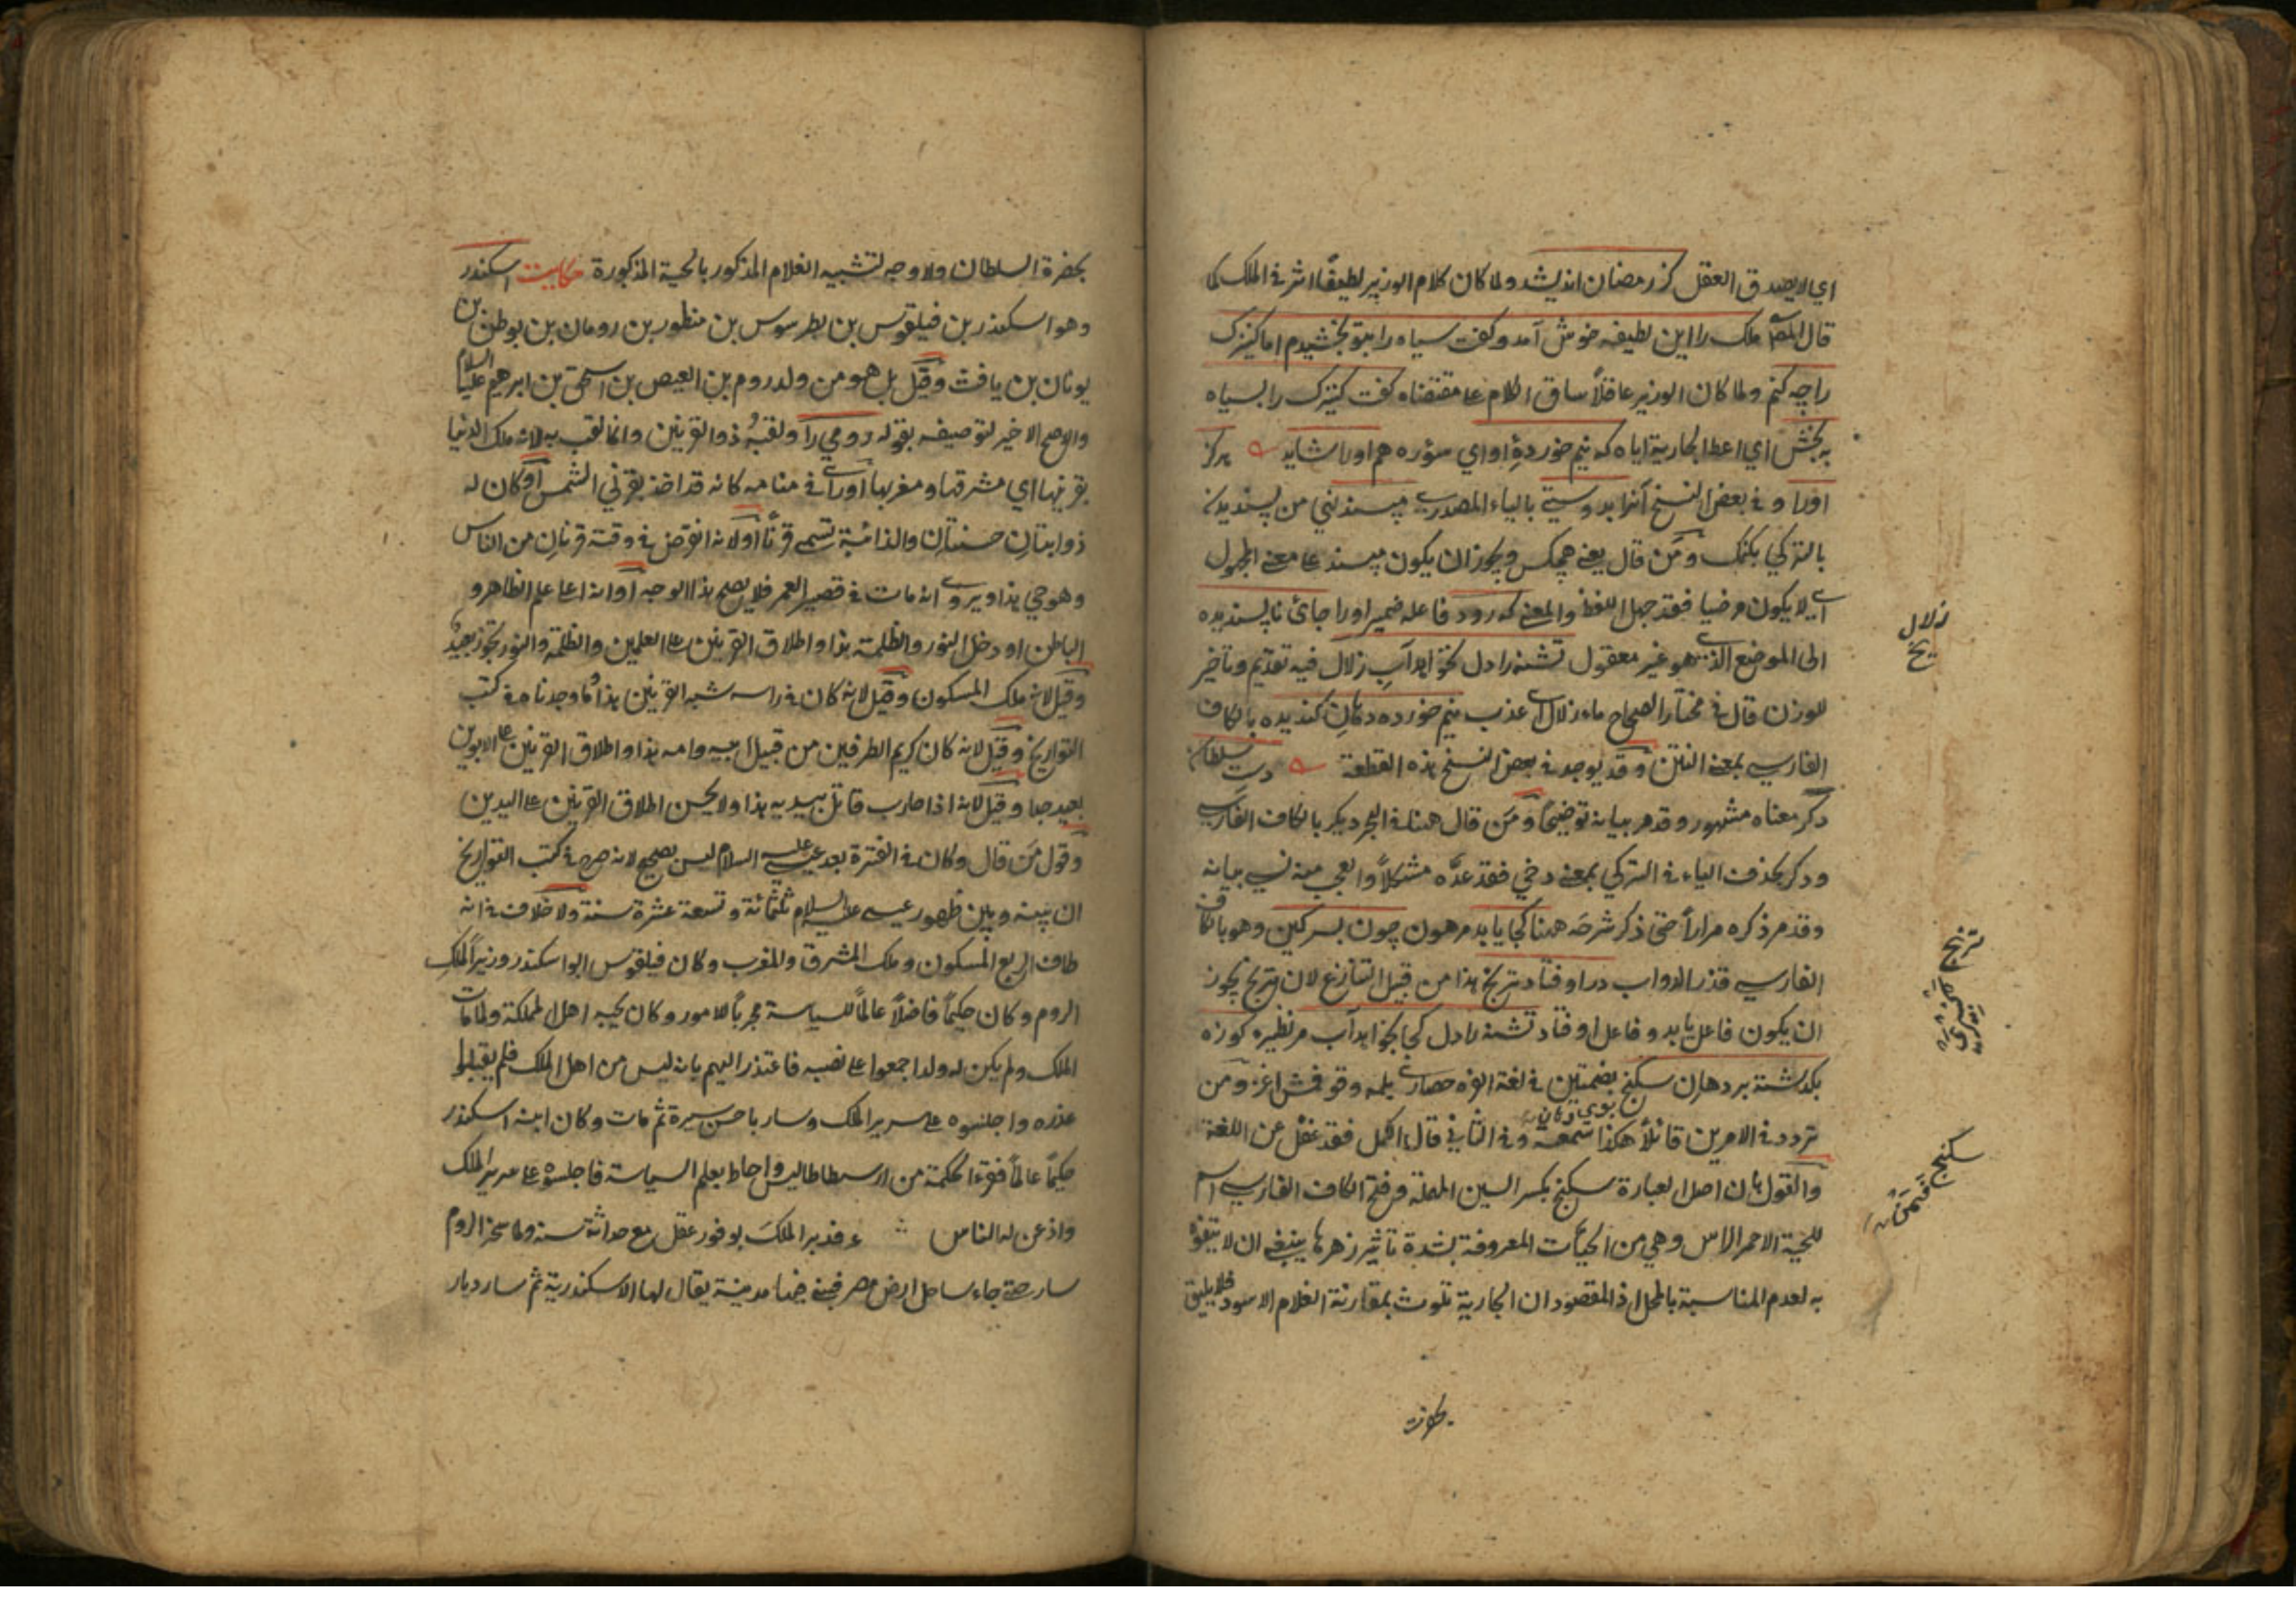 اي لا يصدق العقل كز رمضان انديشد ولما كان كلام الوزير لطيفًا اثر في الملك كما
قال المص ملك را اين لطيفه خوش آمد وكفت سياه را بتو بخشيدم اما كنيزك
را چه كنم ولما كان الوزير عاقلاً ساق الكلام عا مقتضاه كفت كنيزك را بسياه
به بخش اي اعط الجارية اياه كه نيم خوردهٔ او اي سؤره هم اورا شايد هركز
اورا و في بعض النسخ آنرا بدوستي بالياء المصدرية مپسند نهي من پسنديدن
بالتركي بكنمك ومن قال يعني هيچكس ويجوز ان يكون مپسند عا معنى المجهول
اي لا يكون مرضيا فقد جهل اللفظ والمعنى كه رود فاعله ضمير اورا جائ ناپسنديده
الى الموضع الذي هو غير معقول تشنه را دل نخواهد آب زلال فيه تقديم وتأخير
للوزن قال في مختار الصحاح ماء زلال اي عذب نيم خورده دهان كنديده بالكاف
الفارسي بمعنى النتن وقد يوجد في بعض النسخ هذه القطعة دست سلطان
دكر معناه مشهور وقد مر بيانه توضيحًا ومن قال هنا في البحر ديكر بالكاف الفارسي
ودكر بحذف الياء في التركي بمعنى دخي فقد عدّه مشكلاً والعجب منه نسي بيانه
وقد مر ذكره مرارًا حتى ذكر شرحه هنا كجا يابد مرهون چون بسركين وهو بالكاف
الفارسي قذر الدواب در اوفتاد ترنج هذا من قبيل التنازع لان ترنج يجوز
ان يكون فاعل يابد وفاعل اوفتاد تشنه را دل كجا بخواهد آب مر نظيره كوزه
بكذشته بر دهان سكنج بضمتين في لغة
تردد في الامرين قائلاً هكذا سمعته وفي الثاني قال اكمل فقد غفل عن اللغة
والقول بان اصل العبارة سكنج بكسر السين المهملة وفتح الكاف الفارسي اسم
للحية الاحمر الراس وهي من الحيات المعروفة بشدة تأثير زهرها ينبغي ان لا يتفوه
به لعدم المناسبة بالمحل اذ المقصود ان الجارية تلوث بمقارنة الغلام الاسود فلا يليق
زلال
يخ
ترنج
سكنج
بحضرت
بحضرة السلطان ولا وجه لتشبيه الغلام المذكور بالحية المذكورة حكايت اسكندر
وهو اسكندر بن فيلقوس بن بطرسوس بن منطور بن رومان بن بوطن بن
يونان بن يافث وقيل بل هو من ولد روم بن العيص بن اسحق بن ابرهيم عليه السلام
والاصح الاخير لتوصيفه بقوله رومي را ولقبه ذو القرنين وانما لقب به لانه ملك الدنيا
بقرنيها اي مشرقها ومغربها او رآى في منامه كانه قد اخذ بقرني الشمس او كان له
ذوابتان حسنتان والذائبة تسمى قرنًا او لانه انقرض في وقته قرنان من الناس
وهو حي هذا ويروى انه مات في قصير العمر فلا يصح هذا الوجه او انه اعطا علم الظاهر و
الباطن او دخل النور والظلمة هذا واطلاق القرنين عا العلمين والظلمة والنور تجوز بعيد
وقيل لانه ملك المسكون وقيل لانه كان في راسه شبه القرنين هذا ما وجدناه في كتب
التواريخ وقيل لانه كان كريم الطرفين من قبيل ابيه وامه هذا واطلاق القرنين عا الابوين
بعيد جدا وقيل لانه اذا حارب قاتل بيديه هذا ولا يحسن اطلاق القرنين عا اليدين
وقول من قال وكان في الفترة بعد عيسى عليه السلام ليس بصحيح لانه صرح في كتب التواريخ
ان بينه وبين ظهور عيسى عليه السلام ثلثمائة وتسعة عشرة سنة ولا خلاف في انه
طاف الربع المسكون وملك المشرق والمغرب وكان فيلقوس ابو اسكندر وزيرًا لملك
الروم وكان حكيمًا فاضلاً عالمًا للسياسة مجربًا للامور وكان يحبه اهل المملكة ولما مات
الملك ولم يكن له ولد اجمعوا عا نصبه فاعتذر اليهم بانه ليس من اهل الملك فلم يقبلوا
عذره واجلسوه على سرير الملك وسار باحسن سيرة ثم مات وكان ابنه اسكندر
حكيمًا عالمًا فقرء الحكمة من ارسطاطاليس واحاط بعلم السياسة فاجلسوه عا سرير الملك
واذعن له الناس فدبر الملك بوفور عقل مع حداثة سنه ولما سخر الروم
سار حتى جاء ساحل ارض مصر فبنى فيها مدينة يقال لها الاسكندرية ثم سار ديار